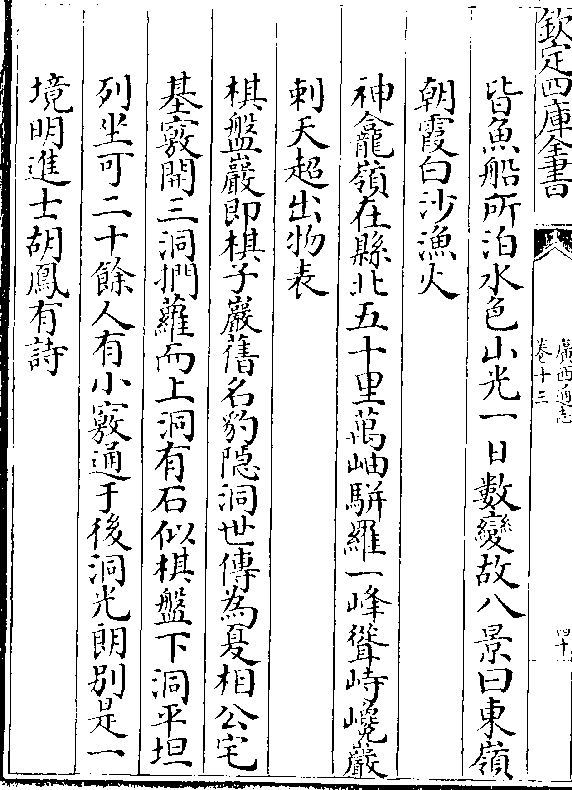 欽定四庫全書
廣西通志
卷十三
四十
皆魚船所泊水色山光一日數變故八景曰東嶺
朝霞白沙漁火
神龕嶺在縣北五十里萬岫駢羅一峰聳峙巉巖
刺天超出物表
棋盤巖即棋子巖舊名豹隠洞世傳為夏相公宅
基竅開三洞捫蘿而上洞有石似棋盤下洞平坦
列坐可二十餘人有小竅通于後洞光朗别是一
境明進士胡鳳有詩